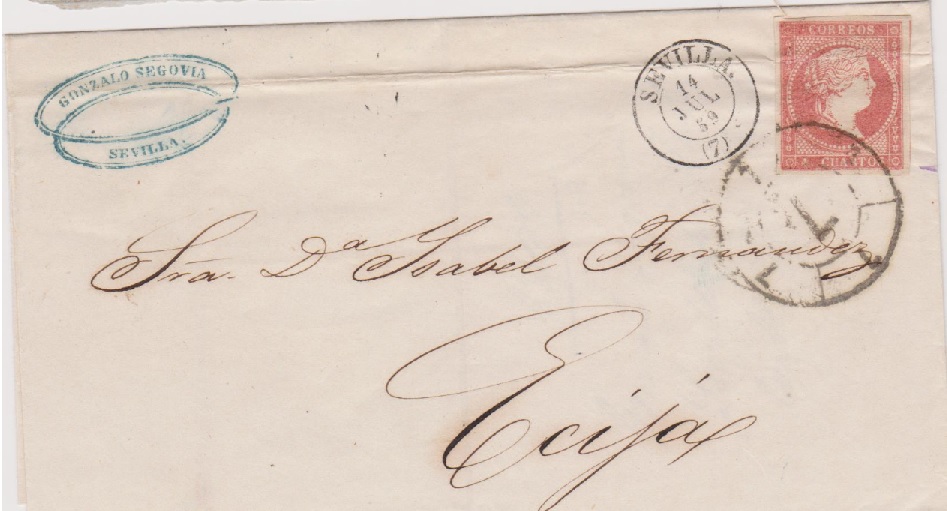 GONZALO SEGOVIA
SEVILLA.
SEVILLA.
14
JUL
59
(7)
CORREOS
CUARTOS
Sra. Dª Isabel Fernandez
Ecija